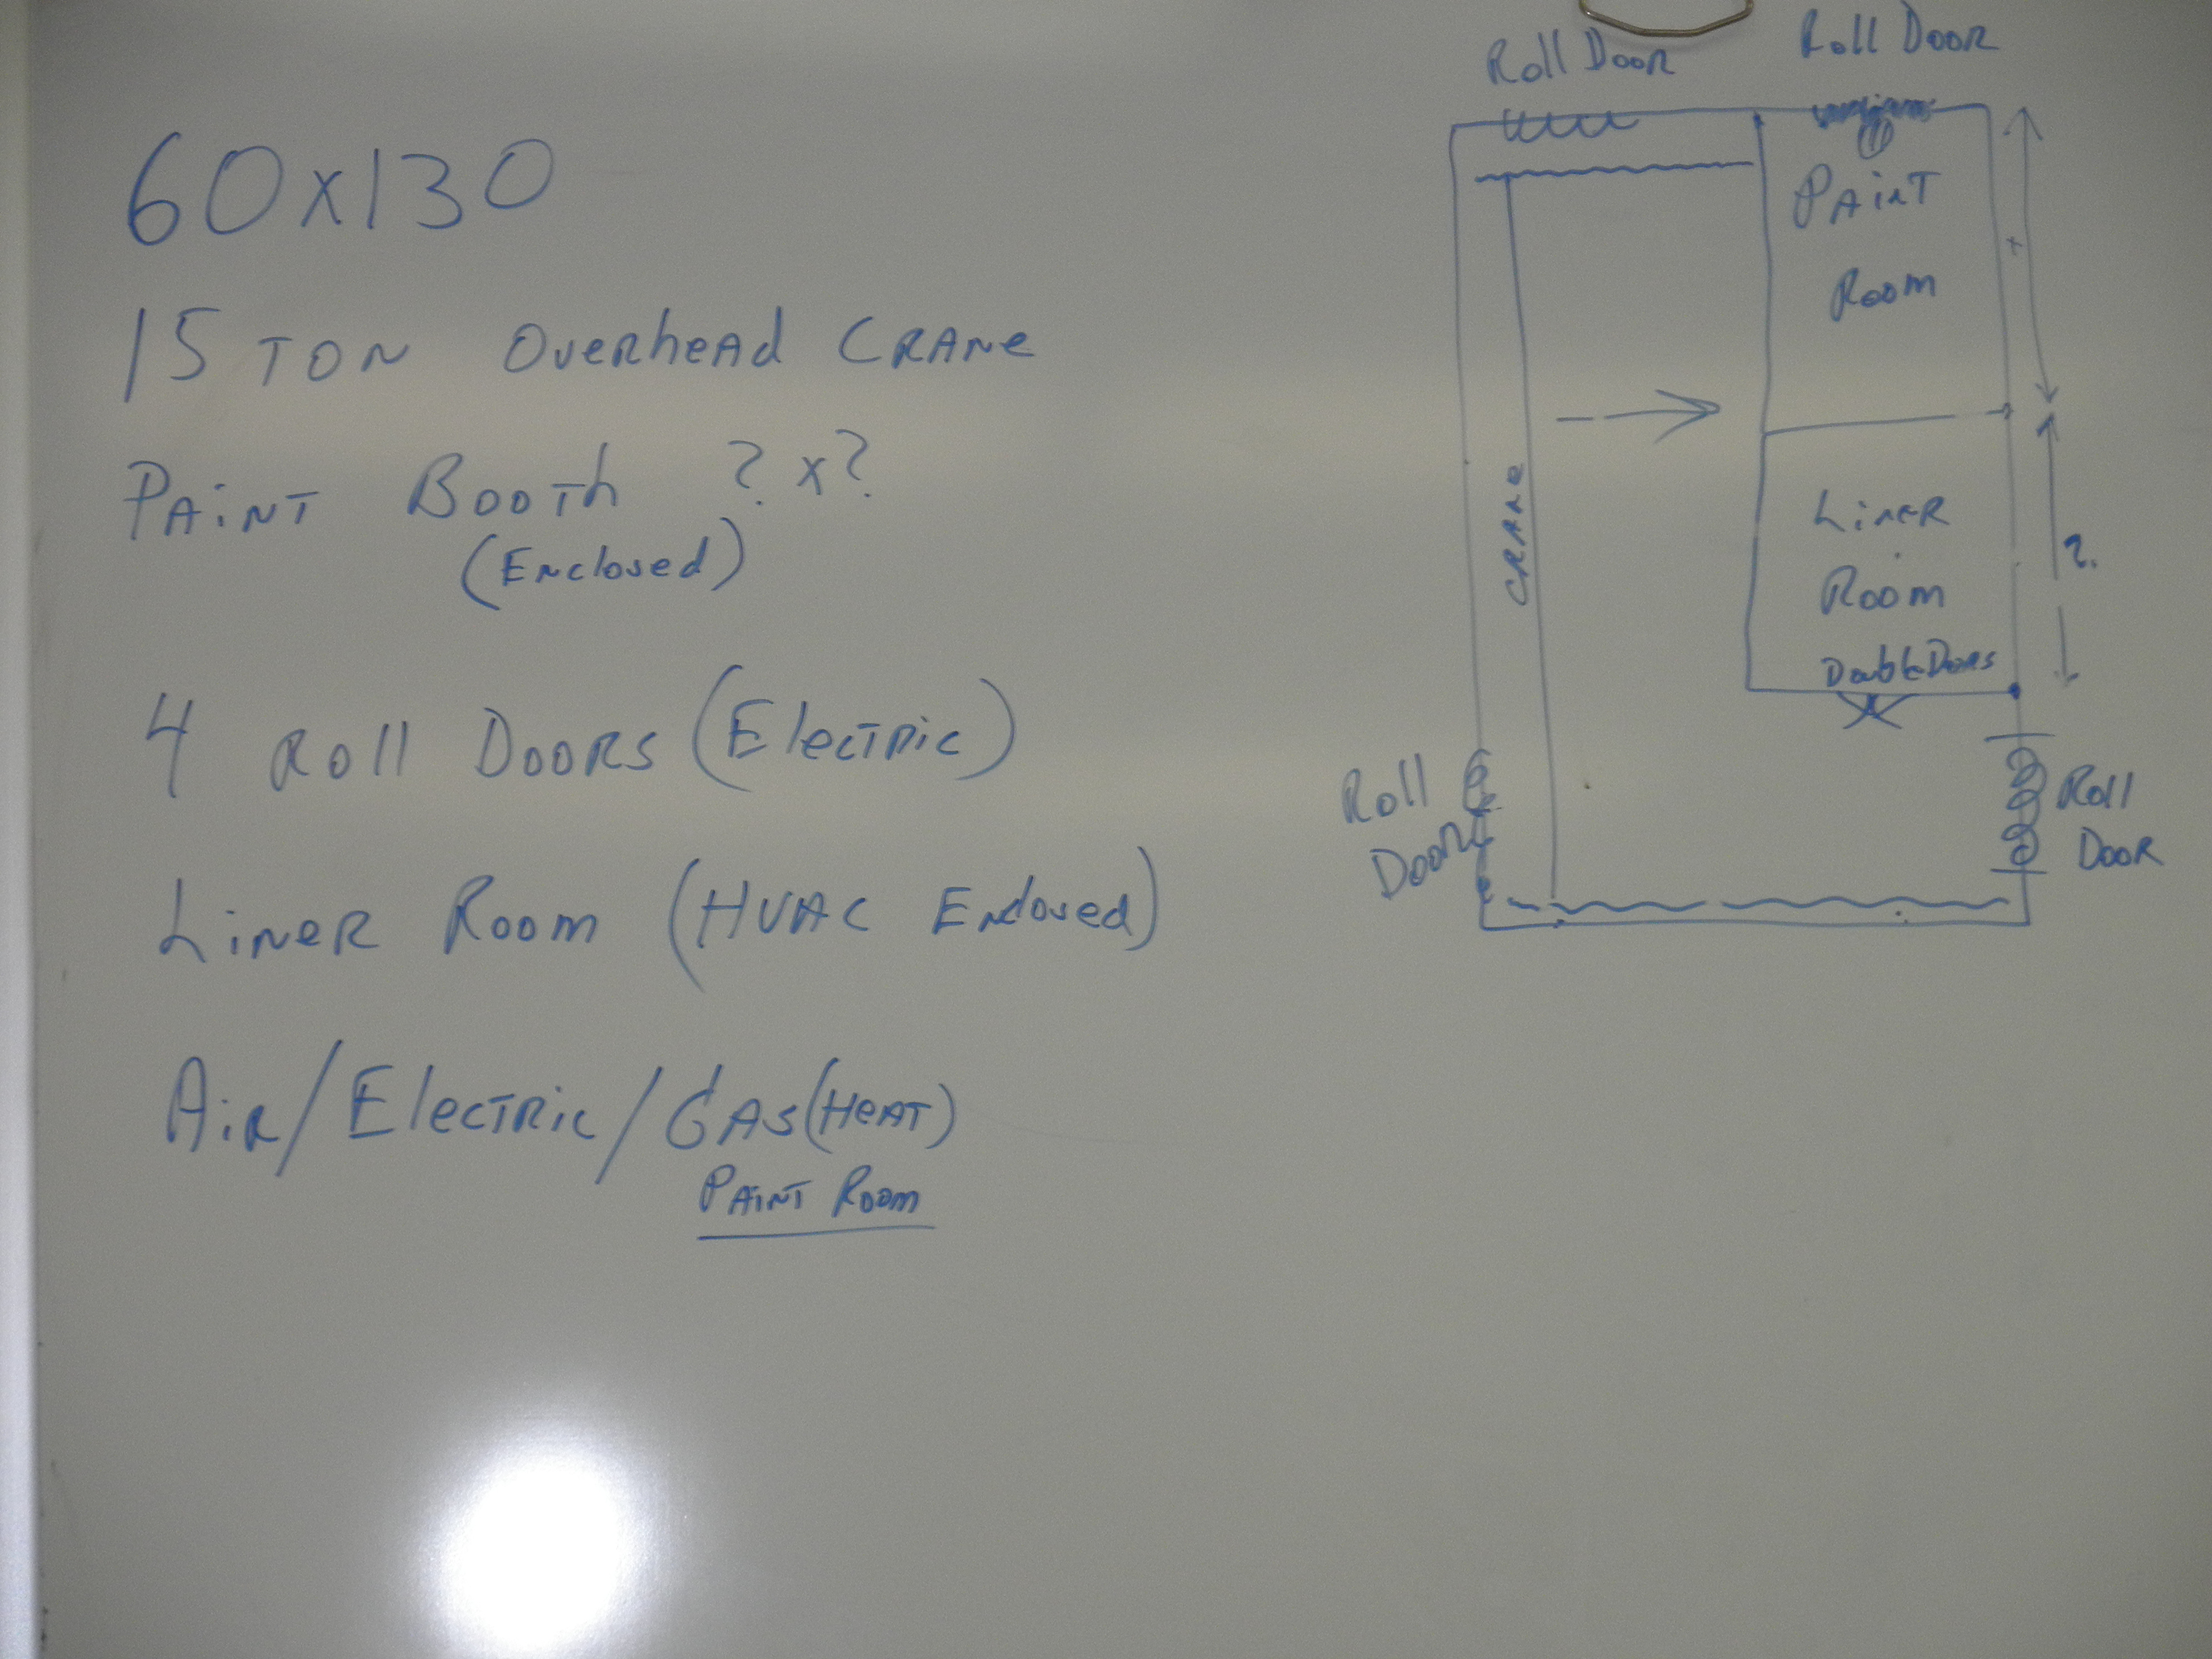 60x130
15 TON OVERHEAD CRANE
PAINT BOOTH ? x ?
(Enclosed)
4 ROLL DOORS (ELECTRIC)
LINER ROOM (HVAC Enclosed)
AIR/ELECTRIC/GAS(HEAT)
PAINT ROOM
Roll Door
Roll Door
PAINT
ROOM
CRANE
LINER
ROOM
Double Doors
?
Roll
Door
Roll
Door